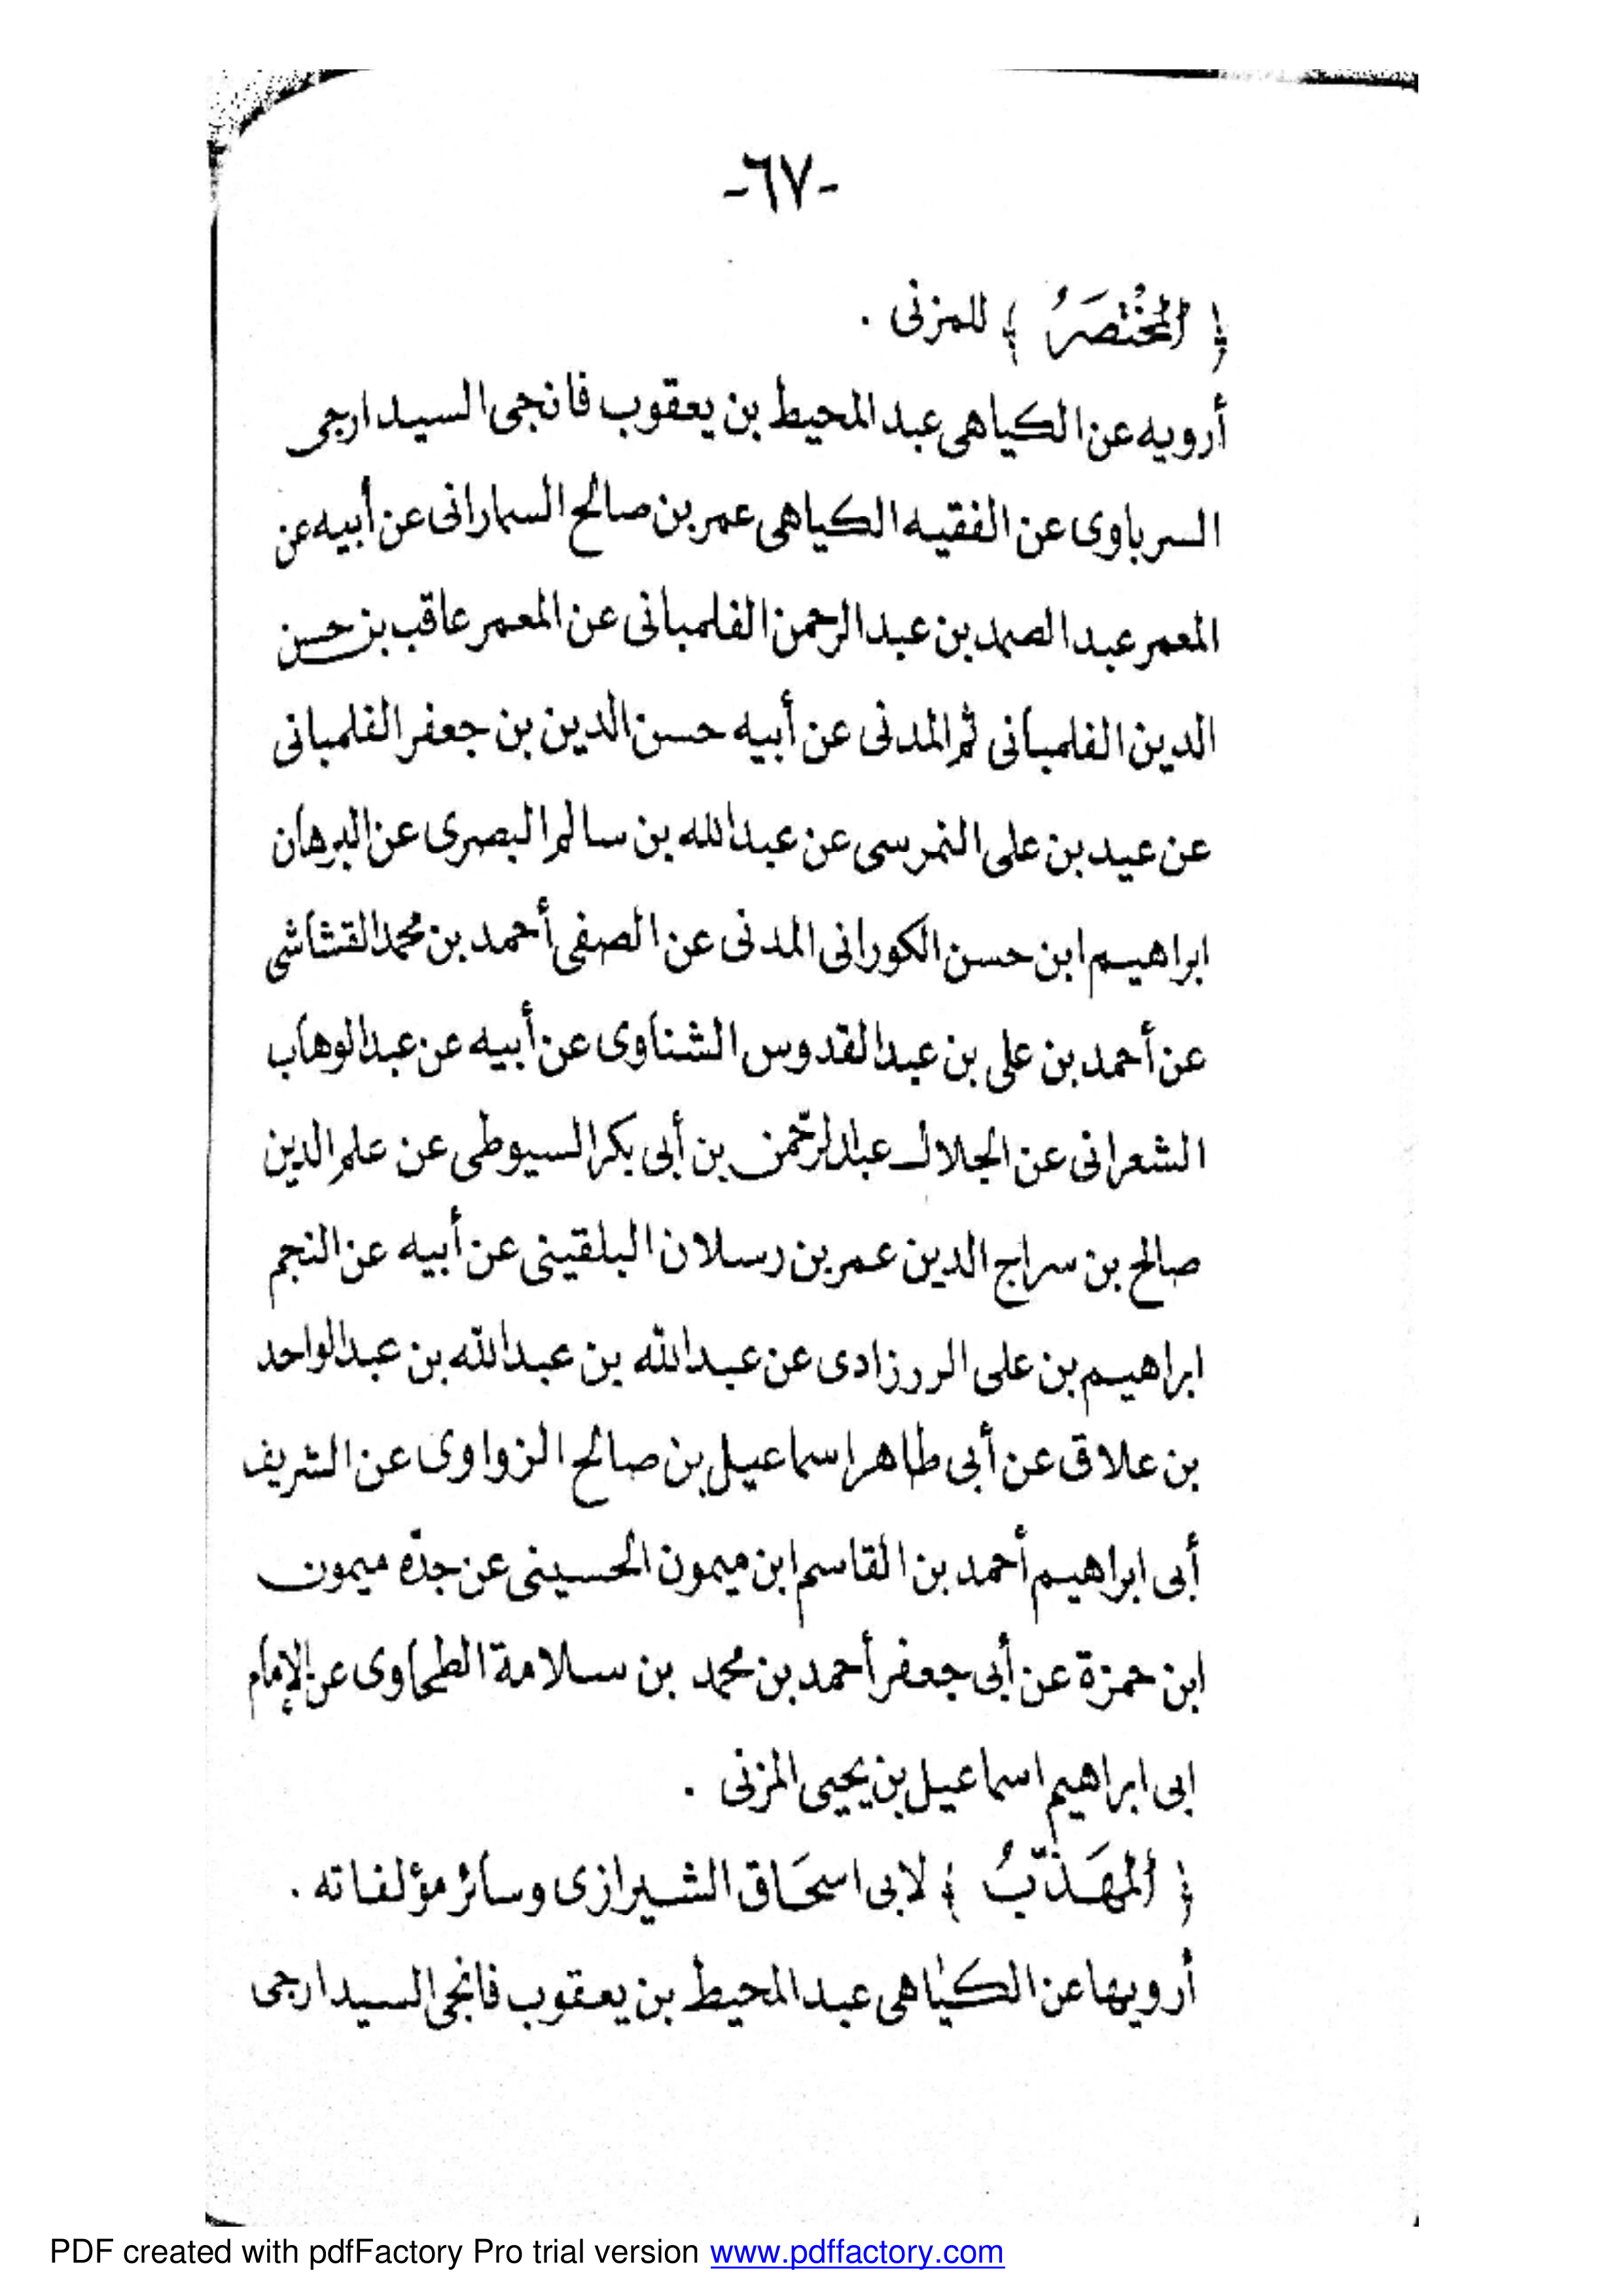 -٦٧-
﴿ اَلمُخْتَصَرُ ﴾ للمزنى .
أرويه عن الكياهى عبد المحيط بن يعقوب فانجى السيدارجى
السرباوى عن الفقيه الكياهى عمر بن صالح السمارانى عن أبيه عن
المعمر عبد الصمد بن عبد الرحمن الفلمبانى عن المعمر عاقب بن حسن
الدين الفلمبانى ثم المدنى عن أبيه حسن الدين بن جعفر الفلمبانى
عن عيد بن على النمرسى عن عبد الله بن سالم البصرى عن البرهان
ابراهيم ابن حسن الكورانى المدنى عن الصفى أحمد بن محمد القشاشى
عن أحمد بن على بن عبد القدوس الشناوى عن أبيه عن عبد الوهاب
الشعرانى عن الجلال عبد الرحمن بن أبى بكر السيوطى عن علم الدين
صالح بن سراج الدين عمر بن رسلان البلقينى عن أبيه عن النجم
ابراهيم بن على الررزادى عن عبد الله بن عبد الله بن عبد الواحد
بن علاق عن أبى طاهر اسماعيل بن صالح الزواوى عن الشريف
أبى ابراهيم أحمد بن القاسم ابن ميمون الحسينى عن جدّه ميمون
ابن حمزة عن أبى جعفر أحمد بن محمد بن سلامة الطحاوى عن الإمام
ابى ابراهيم اسماعيل بن يحيى المزنى .
﴿ اَلمُهَذَّبُ ﴾ لابى اسحَاق الشيرازى وسائر مؤلفاته .
أرويها عن الكياهى عبد المحيط بن يعقوب فانجى السيدارجى
PDF created with pdfFactory Pro trial version www.pdffactory.com